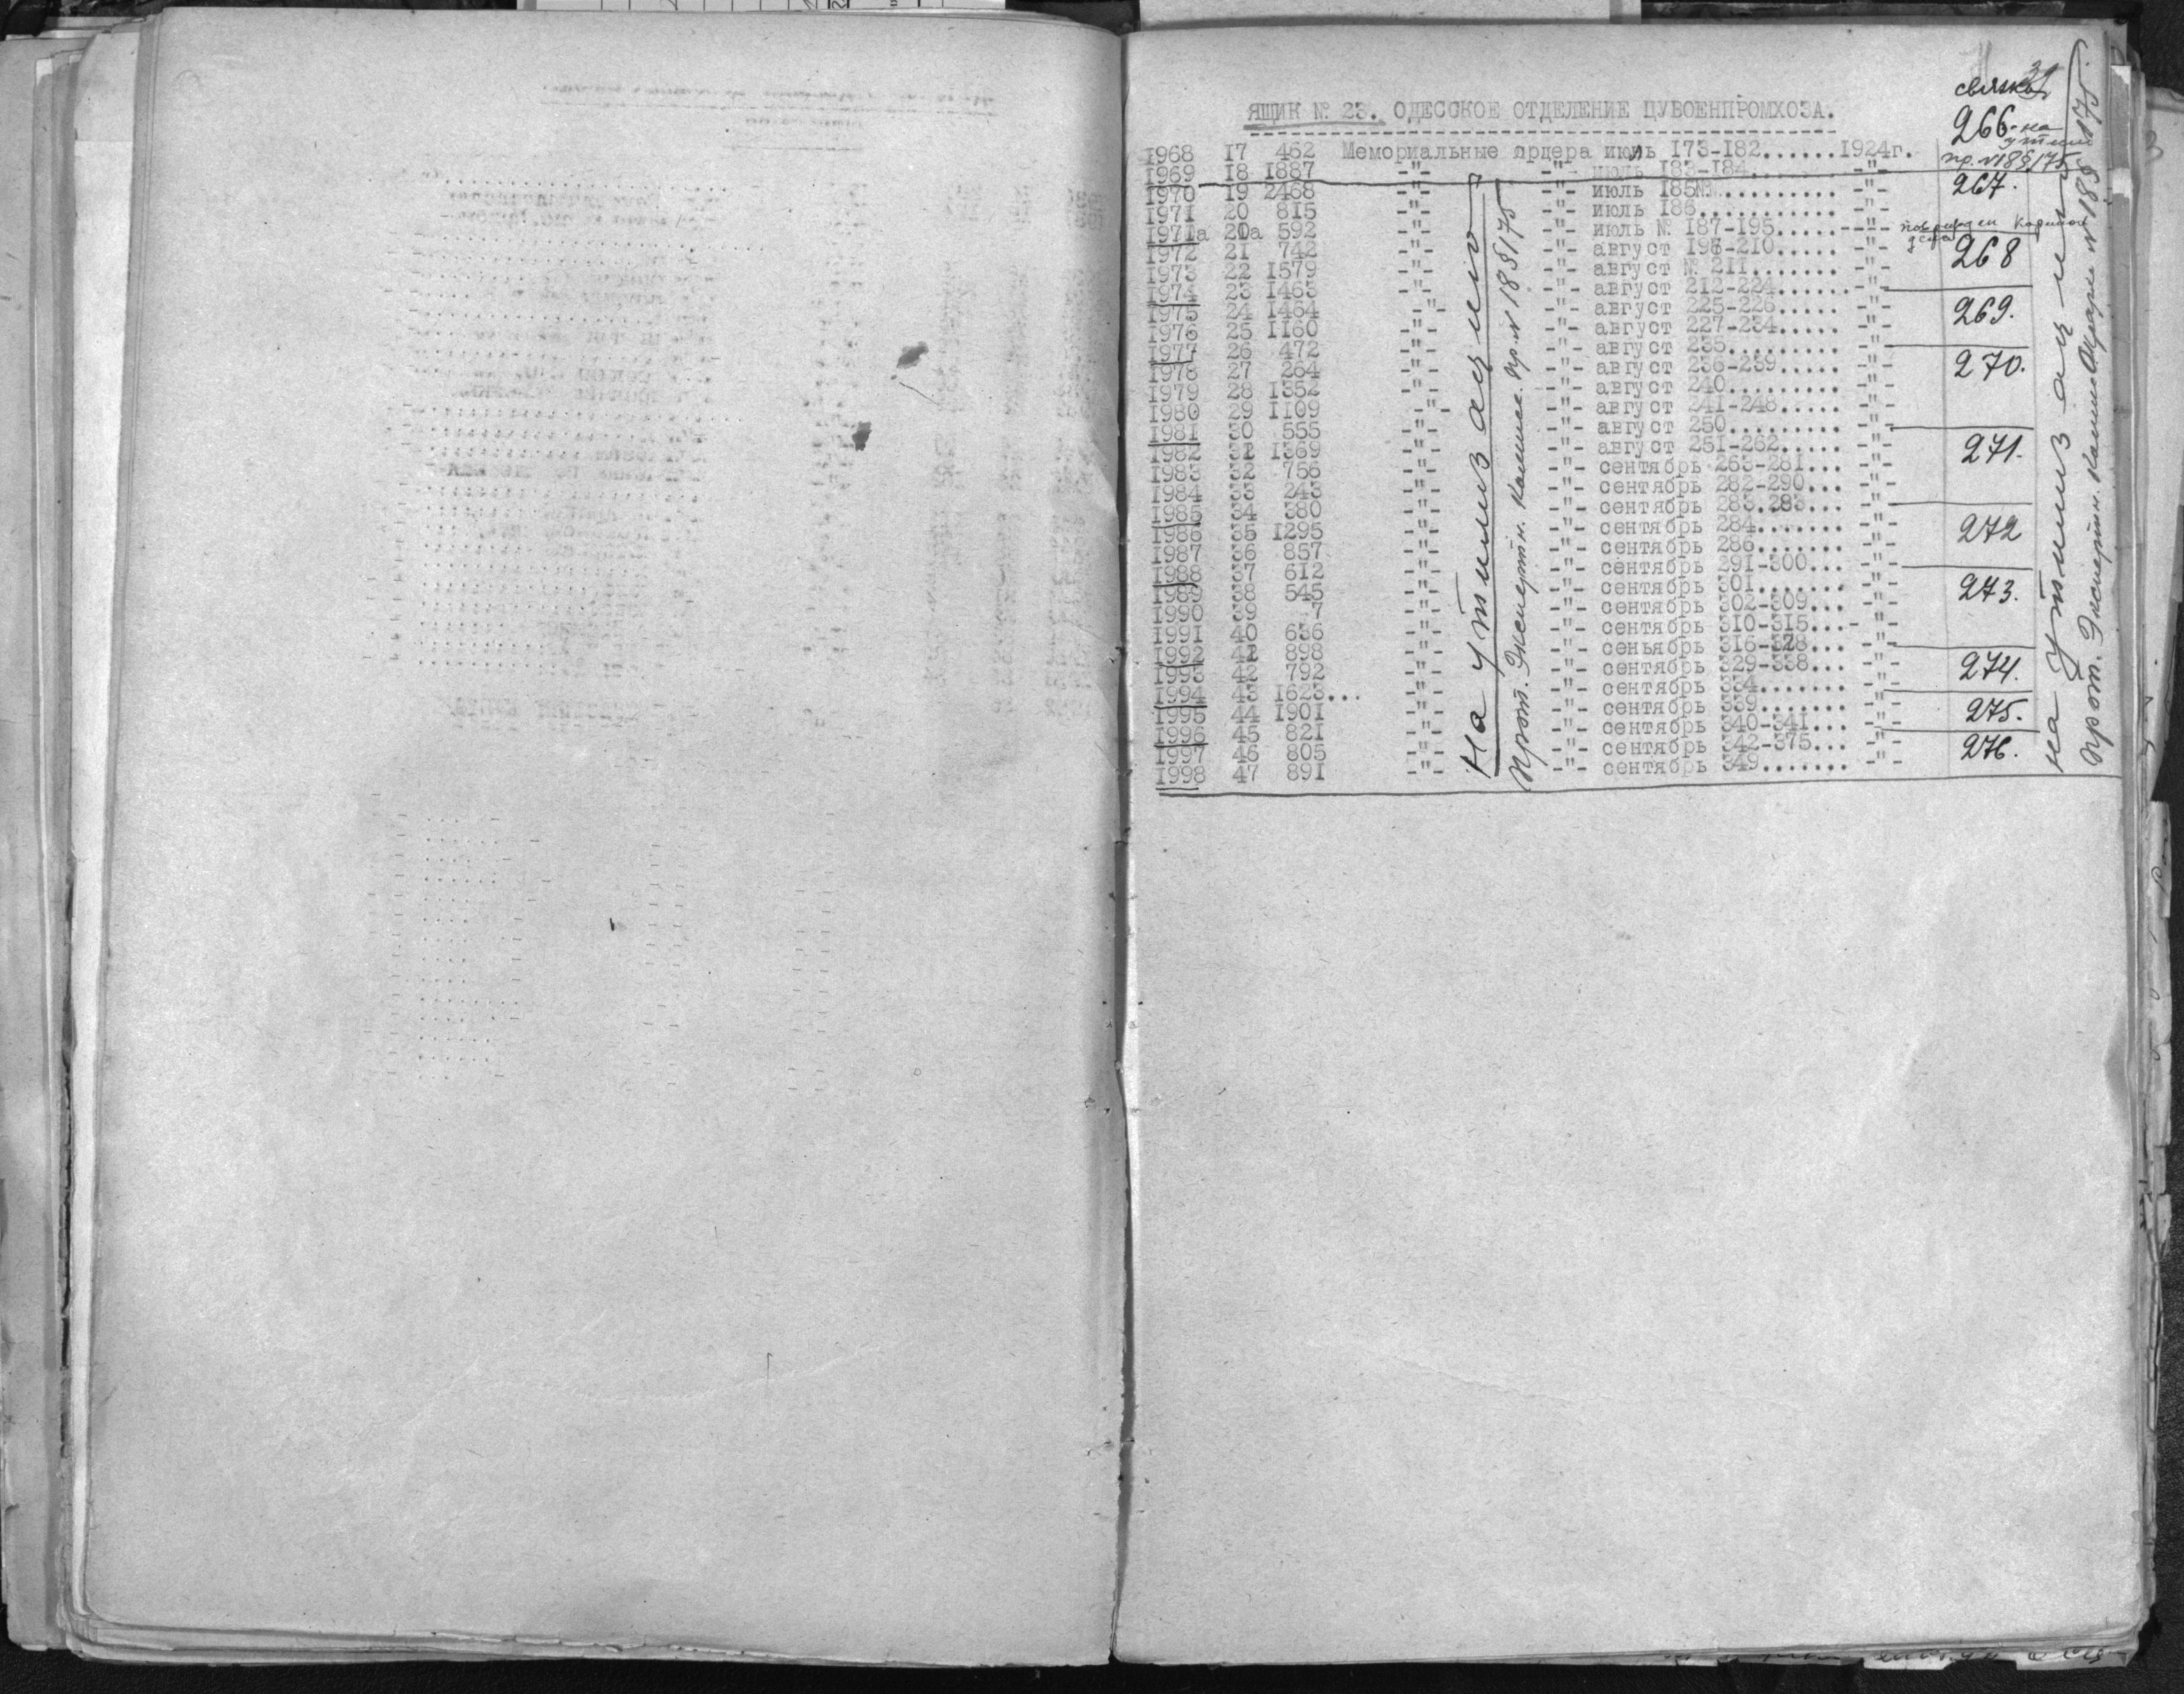 связка
ЯЩИК № 23. ОДЕССКОЕ ОТДЕЛЕНИЕ ЦУВОЕНПРОМХОЗА.
266 - на
пр. №18 §175
1968 17 462 Мемориальные ордера июль 173-182......1924г.
1969 18 1887 -"- -"- июль 183-184....... -"-
1970 19 2468 -"- -"- июль 185.......... -"- 267.
1971 20 815 -"- -"- июль 186........... -"-
1971а 20а 592 -"- -"- июль № 187-195..... -"-
1972 21 742 -"- -"- август 196-210..... -"- 268
1973 22 1579 -"- -"- август № 211....... -"-
1974 23 1463 -"- -"- август 212-224...... -"-
1975 24 1464 -"- -"- август 225-226..... -"- 269.
1976 25 1160 -"- -"- август 227-234..... -"-
1977 26 472 -"- -"- август 235......... -"-
1978 27 264 -"- -"- август 236-239..... -"- 270.
1979 28 1352 -"- -"- август 240......... -"-
1980 29 1109 -"- -"- август 241-248..... -"-
1981 30 555 -"- -"- август 250......... -"-
1982 31 1369 -"- -"- август 251-262..... -"- 271.
1983 32 756 -"- -"- сентябрь 263-281... -"-
1984 33 243 -"- -"- сентябрь 282-290... -"-
1985 34 380 -"- -"- сентябрь 283.283... -"-
1986 35 1295 -"- -"- сентябрь 284....... -"- 272
1987 36 857 -"- -"- сентябрь 286....... -"-
1988 37 612 -"- -"- сентябрь 291-300... -"-
1989 38 545 -"- -"- сентябрь 301....... -"- 273.
1990 39 7 -"- -"- сентябрь 302-309... -"-
1991 40 636 -"- -"- сентябрь 310-315... -"-
1992 41 898 -"- -"- сеньябрь 316-328... -"-
1993 42 792 -"- -"- сентябрь 329-338... -"- 274.
1994 43 1623... -"- -"- сентябрь 334....... -"-
1995 44 1901 -"- -"- сентябрь 339....... -"- 275.
1996 45 821 -"- -"- сентябрь 340-341... -"-
1997 46 805 -"- -"- сентябрь 342-375... -"- 276.
1998 47 891 -"- -"- сентябрь 349....... -"-
На утилизацию
Прот. Экспертн. Комисс. пр. № 18 §175
На утилизацию
Прот. Экспертн. Комиссии № 18 § 175.